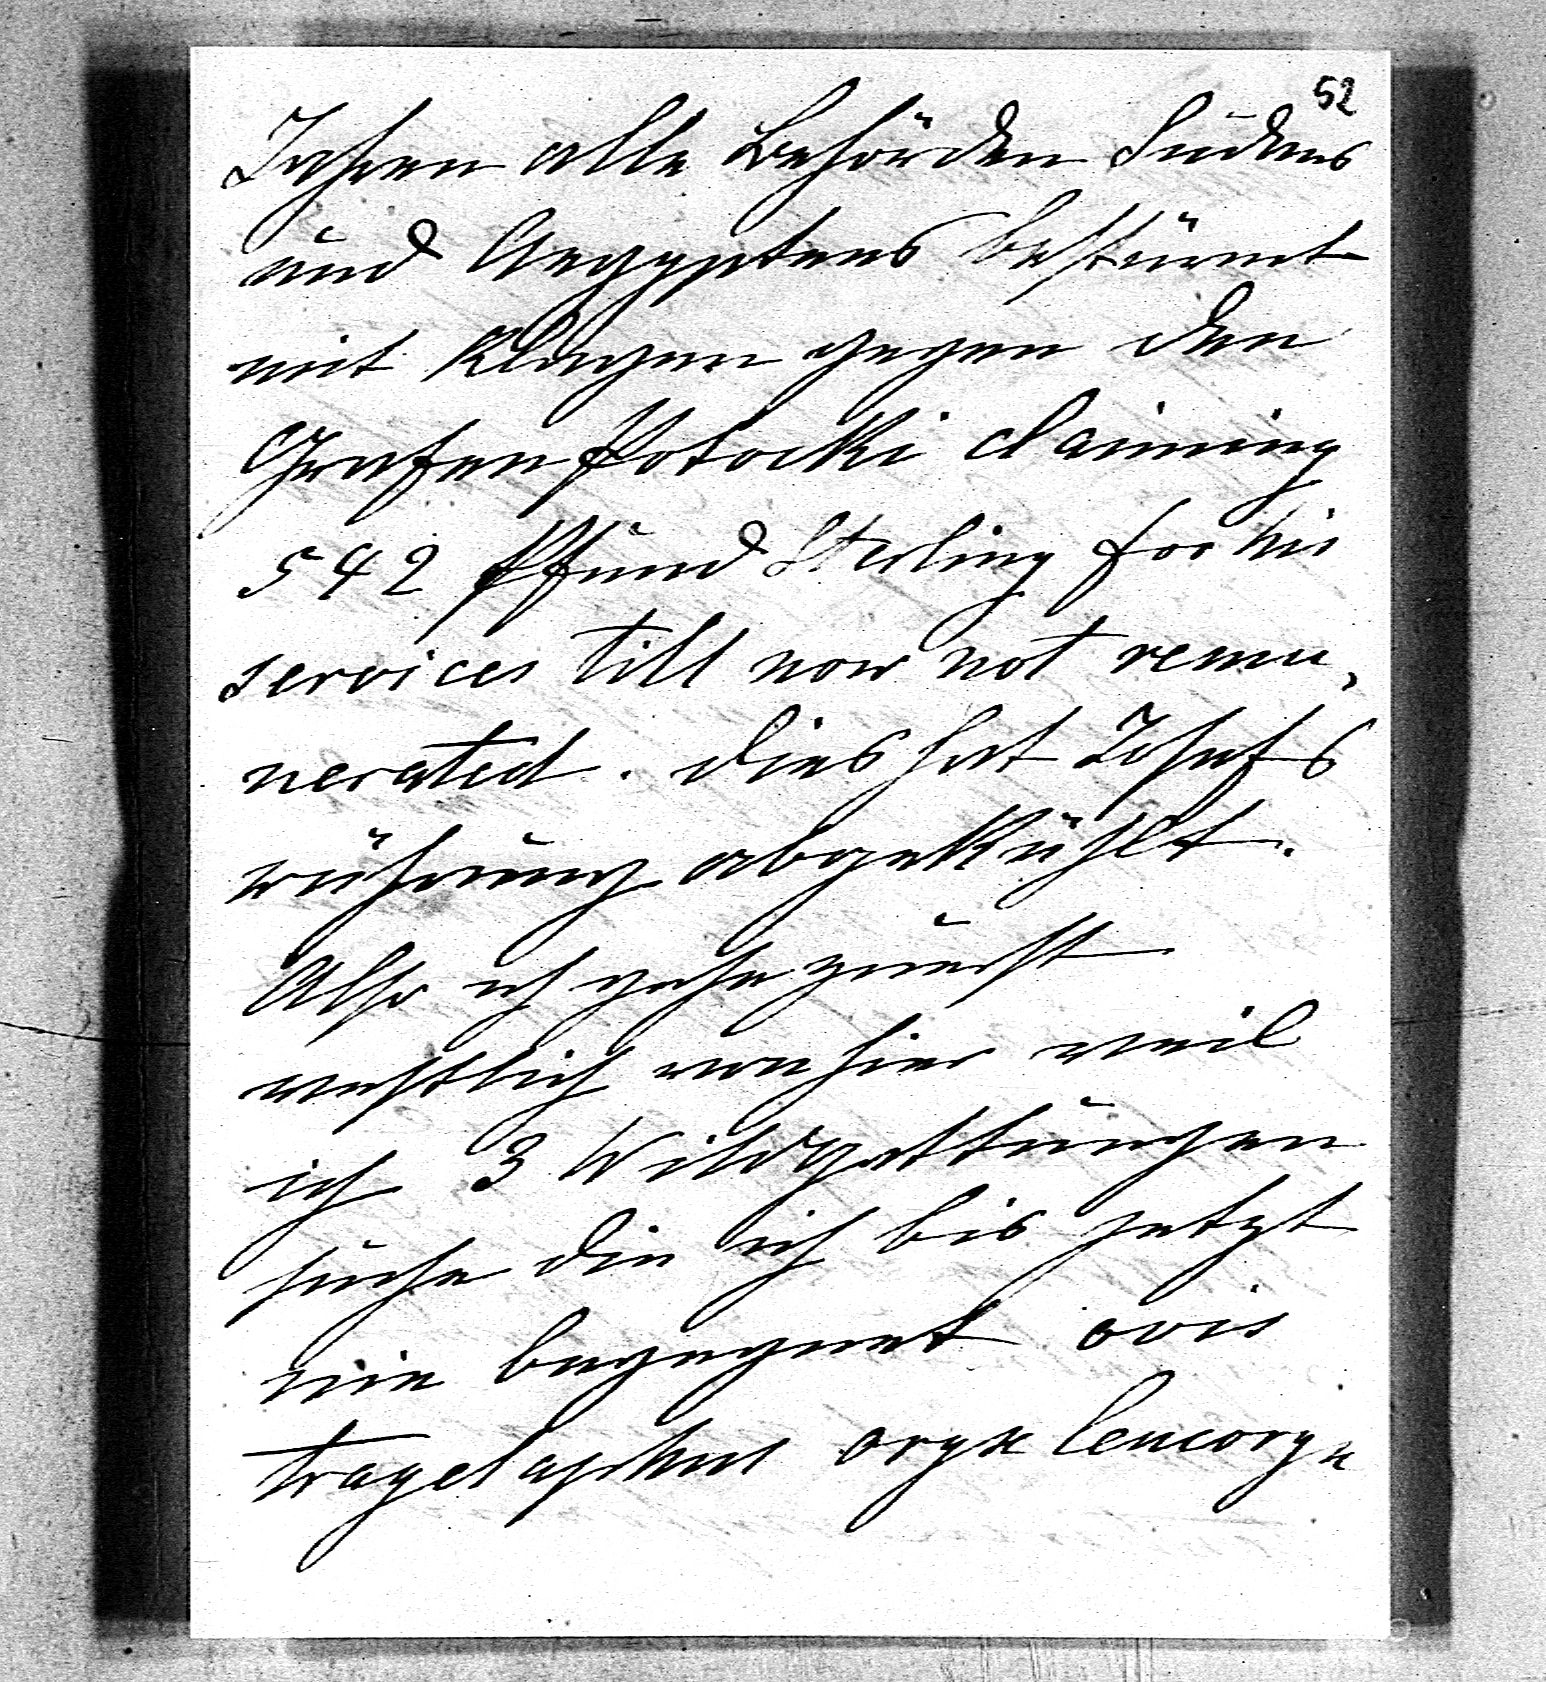 52
Jahren alle Behörden Sudans
und Aegyptens bestürmt
mit Klagen gegen den
Grafen Potocki claiming
542 Pfund Sterling for his
services till now not remu,
nerated. Dies hat Josefs
rührung abgekühlt.
Also ich gehe zuerst
westlich von hier weil
ich 3 Wildgattungen
suche die ich bis jetzt
nie begegnet ovis
tragelaphus oryx leucoryx